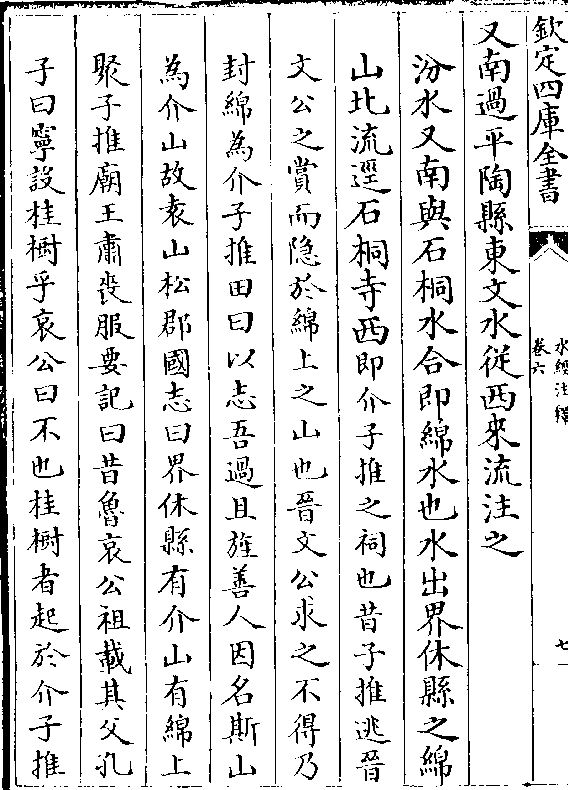 欽定四庫全書
水經注釋
卷六
七
又南過平陶縣東文水從西來流注之
汾水又南與石桐水合即綿水也水出界休縣之綿
山北流逕石桐寺西即介子推之祠也昔子推逃晉
文公之賞而隐於綿上之山也晉文公求之不得乃
封綿為介子推田曰以志吾過且旌善人因名斯山
為介山故袁山松郡國志曰界休縣有介山有綿上
聚子推廟王肅喪服要記曰昔魯哀公祖載其父孔
子曰寧設桂樹乎哀公曰不也桂樹者起於介子推